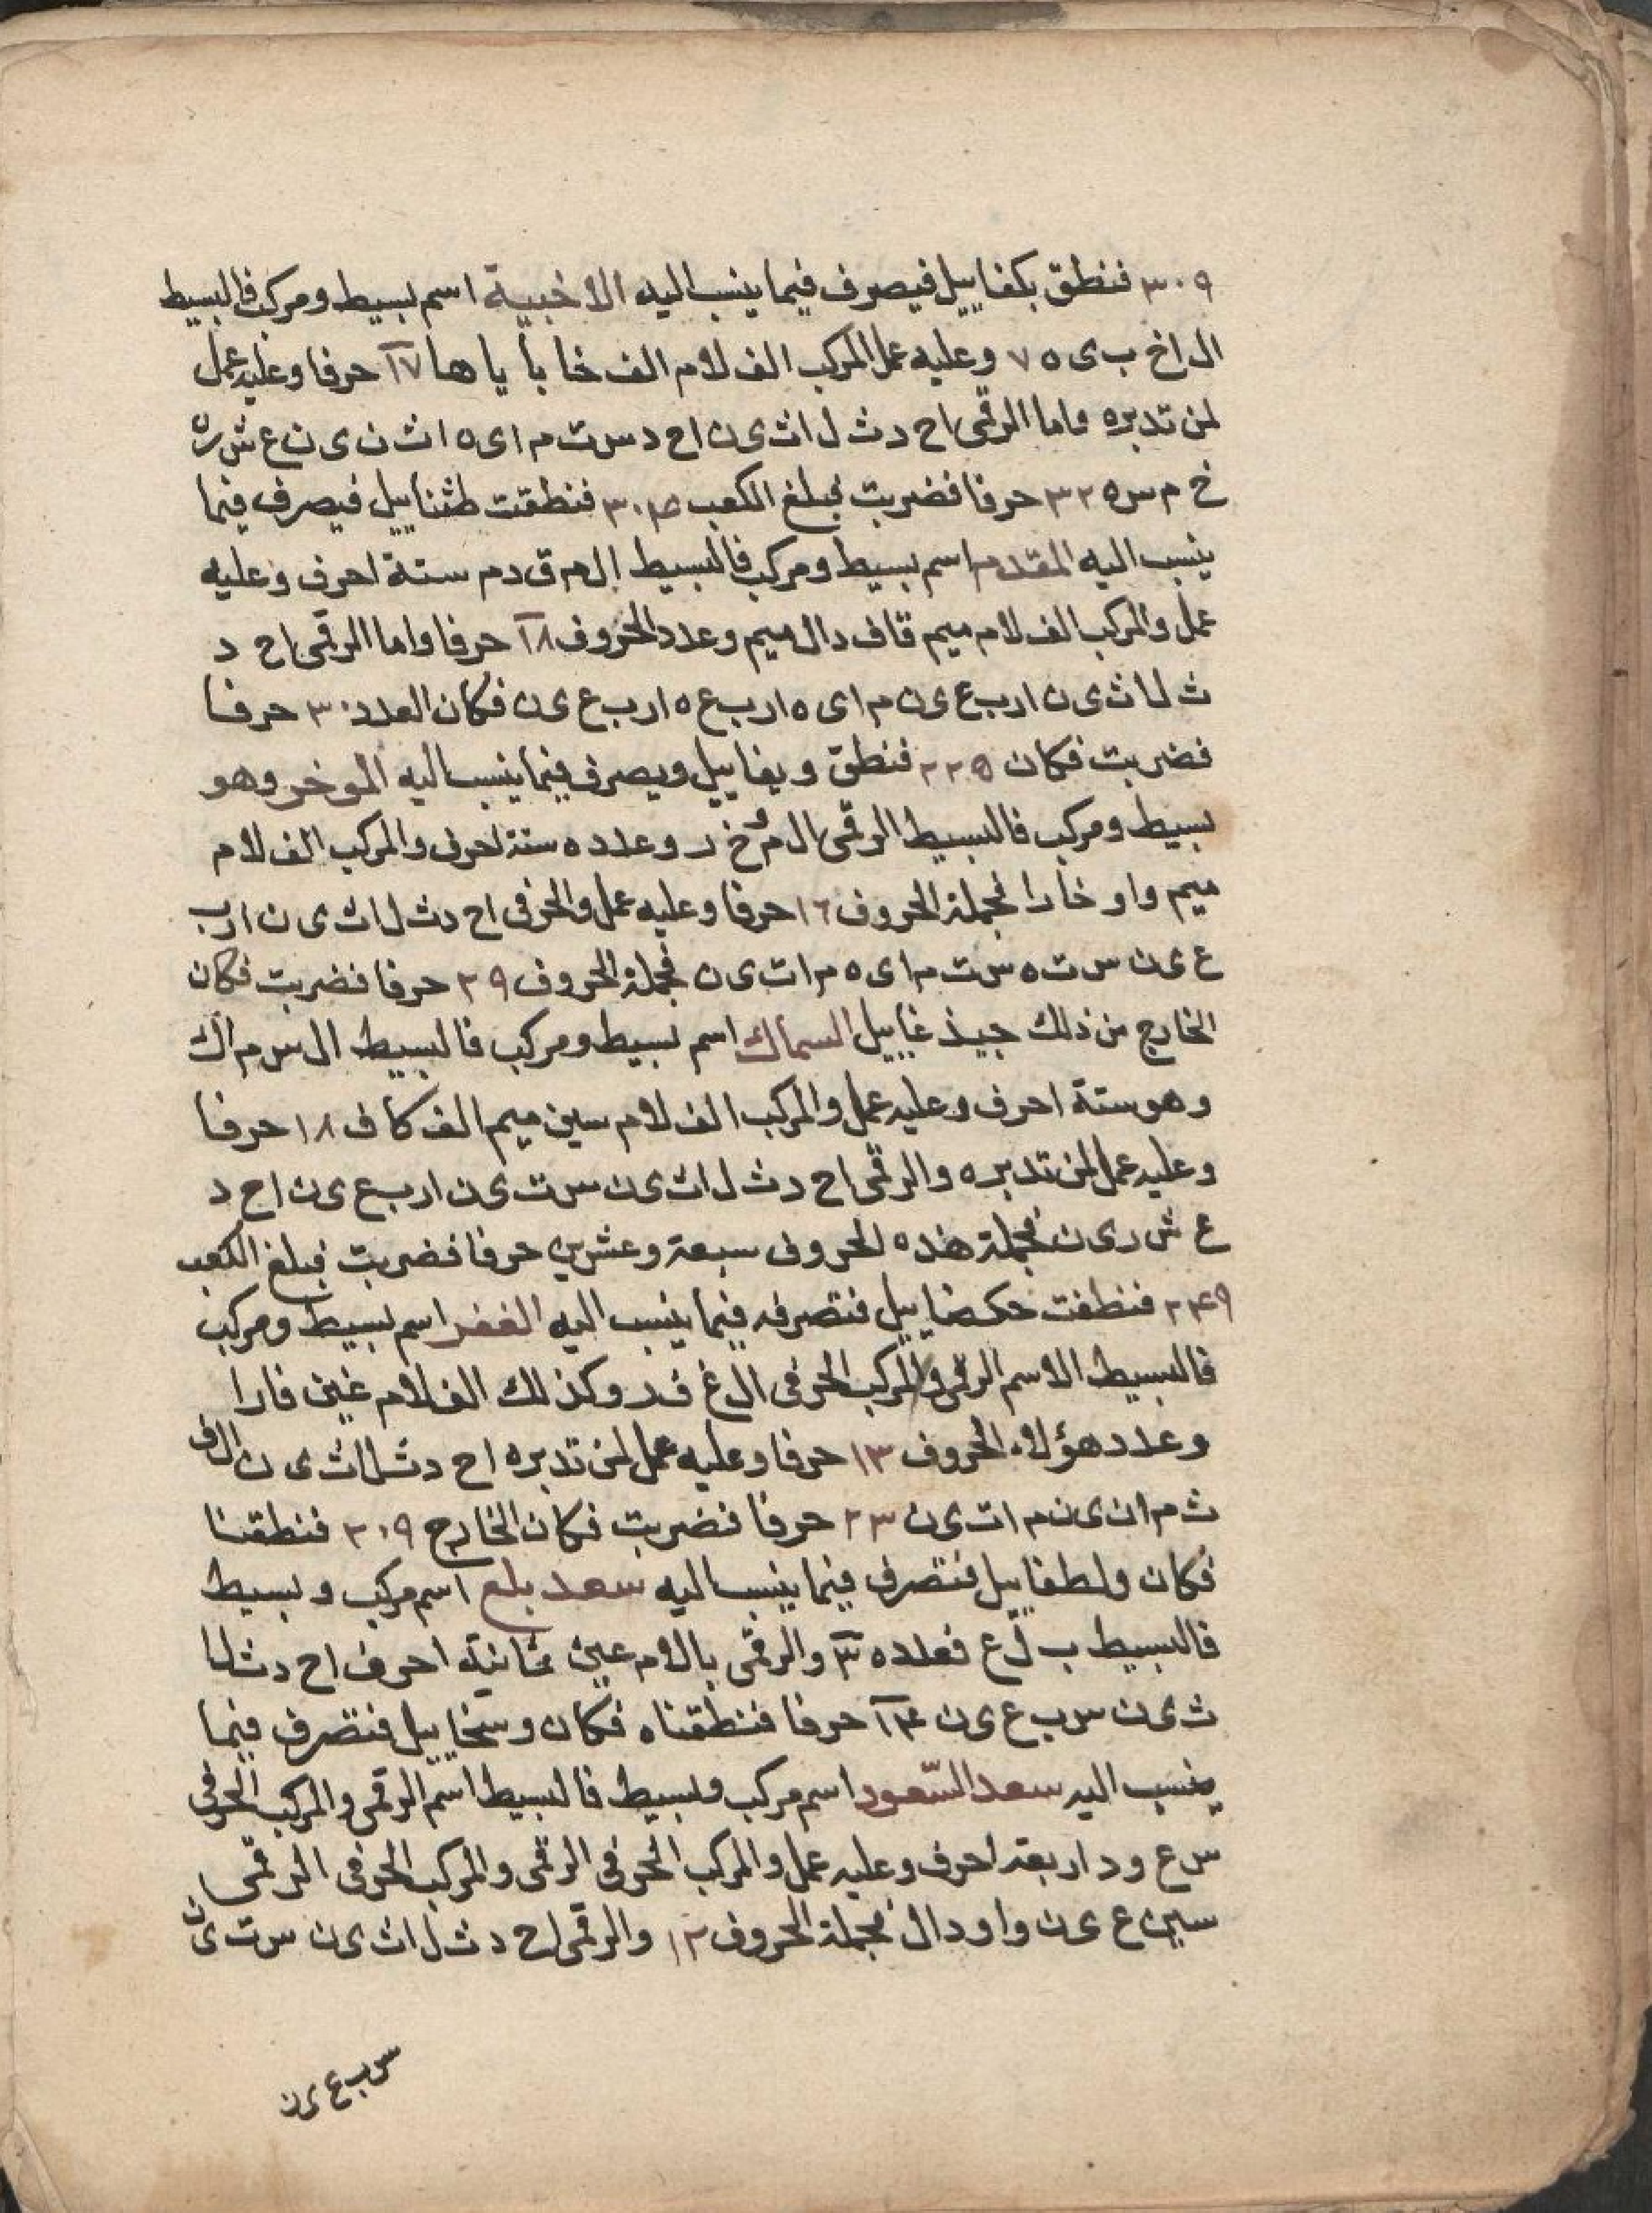 ٣٠٩ فنطق بكفاييل فيصرف فيما ينسب اليه الاخبية اسم بسيط ومركب فالبسيط
ال ا خ ب ى ٥ ٧ وعليه عمل المركب الف لام الف خا با يا ها ١٧ حرفا وعليه عمل
لمن تدبره واما الرقمى اح د ث ل ا ث ى ن اح د س ت م ا ى ه ا ث ن ى ن ع ش ره
خ م س ه ٣٢ حرفا فضربت فبلغ المكعب فنطقت طثناييل فيصرف فيما
ينسب اليه المقدم اسم بسيط ومركب فالبسيط ال م ق د م ستة احرف وعليه
عمل والمركب الف لام ميم قاف دال ميم وعدد الحروف ١٨ حرفا واما الرقمى اح د
ث ل ا ث ى ن ا ر ب ع ى ن م ا ى ه ا ر ب ع ه ا ر ب ع ى ن فكان العدد ٣٠ حرفا
فضربت فكان ٢٢٥ فنطق ويفاييل ويصرف فيما ينسب اليه الموخر وهو
بسيط ومركب فالبسيط الرقمى ال م و خ ر وعدده ستة احرف والمركب الف لام
ميم واو خا را فجملة الحروف ١٦ حرفا وعليه عمل والحرفى اح د ث ل ا ث ى ن ا ر ب
ع ى ن س ت ه س ت م ا ى ه م ا ت ى ن فجملة الحروف ٢٩ حرفا فضربت فكان
الخارج من ذلك جيذغاييل السماك اسم بسيط ومركب فالبسيط ال س م ا ك
وهو ستة احرف وعليه عمل والمركب الف لام سين ميم الف كاف ١٨ حرفا
وعليه عمل لمن تدبره والرقمى اح د ث ل ا ث ى ن س ت ى ن ا ر ب ع ى ن اح د
ع ش ر ى ن فجملة هذه الحروف سبعة وعشرين حرفا فضربت فبلغ الكعب
٢٣٤٩ فنطفت حكضاييل فنتصرف فيما ينسب اليه الغفر اسم بسيط ومركب
فالبسيط الاسم الرقمى والمركب الحرفى ال غ ف ر وكذلك الف لام غين فا را
وعدد هؤلاء الحروف ١٣ حرفا وعليه عمل لمن تدبره اح د ث ل ا ث ى ن ال ف
ث م ا ن ى ن م ا ت ى ن ٢٣ حرفا فضربت فكان الخارج ٢٠٩ فنطقنا
فكان ولطفاييل فنتصرف فيما ينسب اليه سعد بلع اسم مركب وبسيط
فالبسيط ب ل ع فعدده ٣ والرقمى با لام عين ثمانية احرف اح د ث ل ا
ث ى ن س ب ع ى ن ١٤ حرفا فنطقناه فكان وسخاييل فنتصرف فيما
ينسب اليه سعد السّعود اسم مركب وبسيط فالبسيط اسم الرقمى والمركب الحرفى
س ع و د اربعة احرف وعليه عمل والمركب الحرفى الرقمى والمركب الحرفى الرقمى
سين ع ى ن واو دال فجملة الحروف ١٢ والرقمى اح د ث ل ا ث ى ن س ت ى ن
س ب ع ى ن